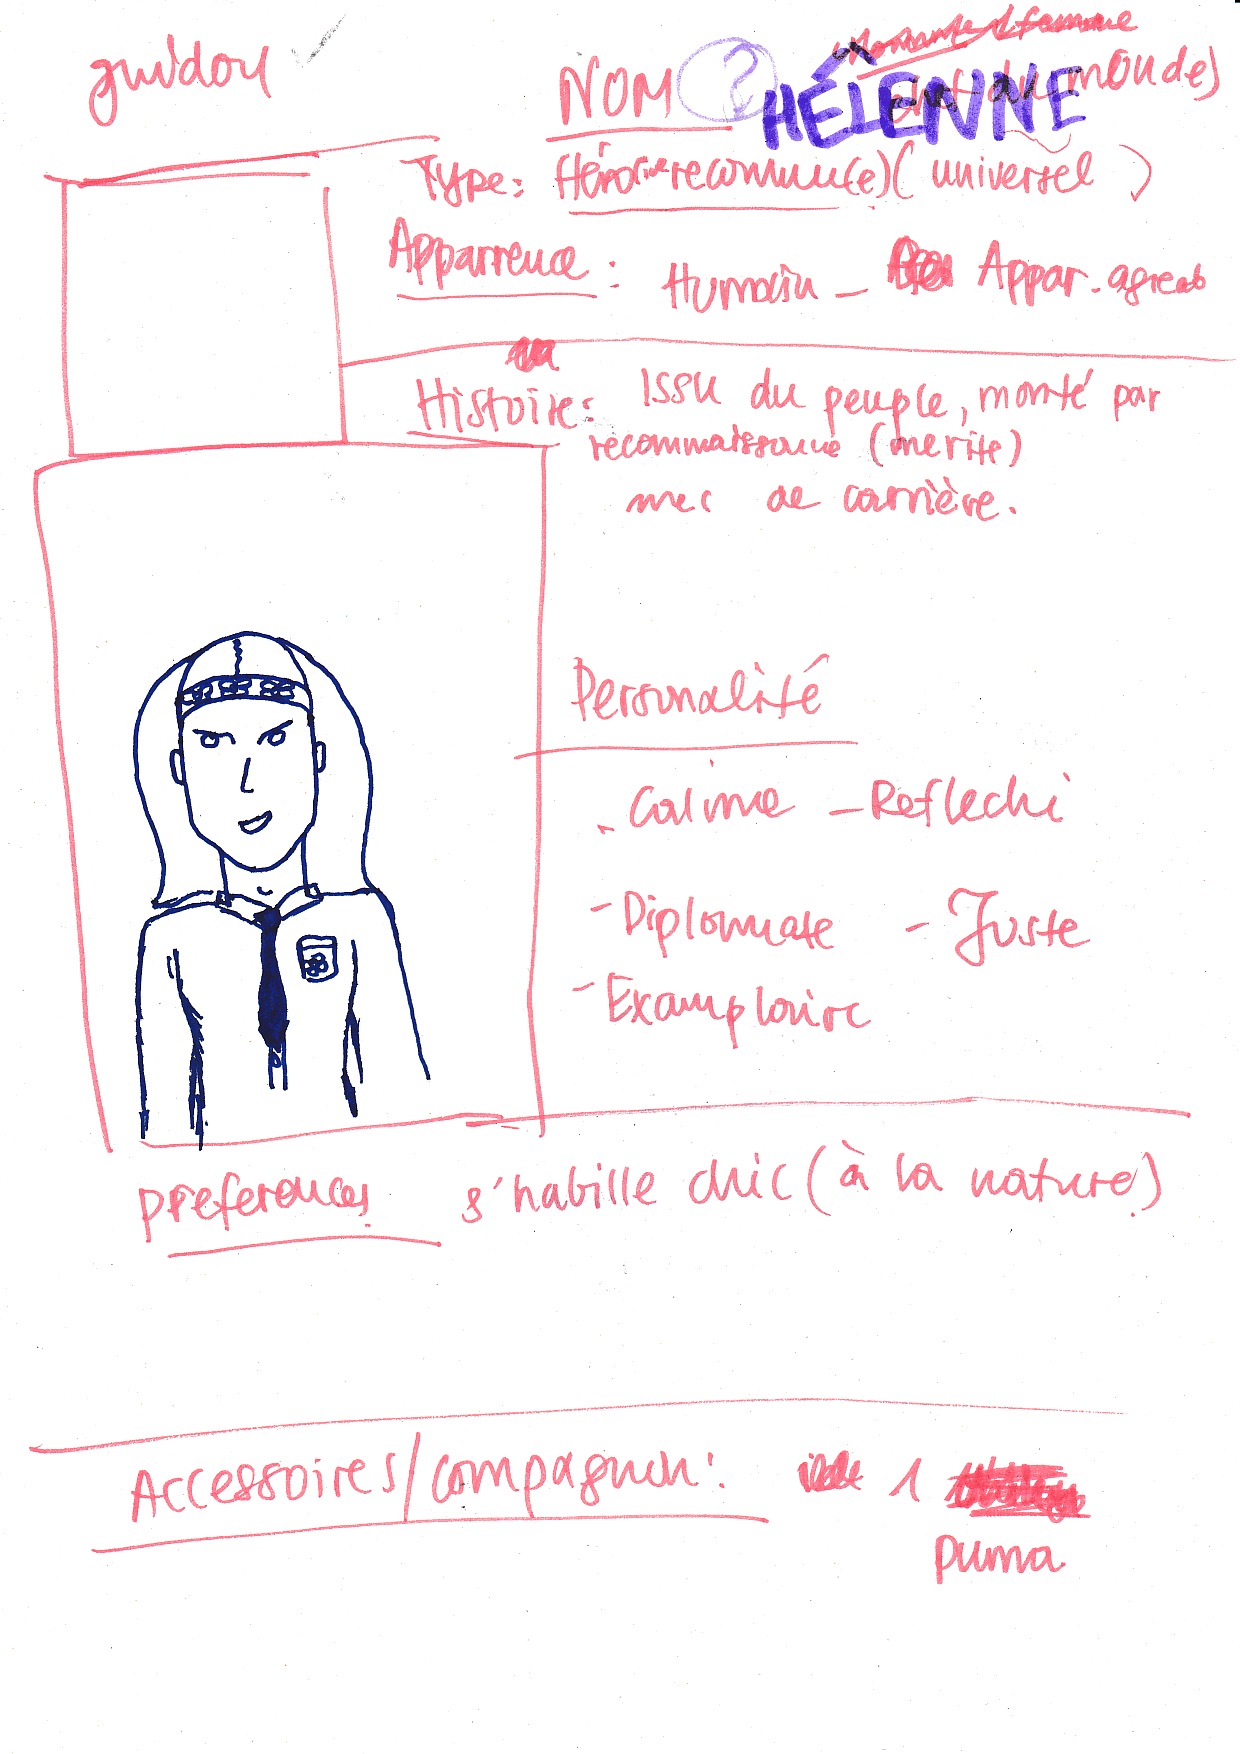 guidou
NOM ? HÉLENNE
du monde)
Type: Héroïne reconnu(e) (universel)
Apparrence : Humain – Appar. agreab
Histoire: Issu du peuple, monté par
reconnaissance (merite)
mec de carrière.
Personalité
- Calme - Reflechi
- Diplomate - Juste
- Examplaire
preferences s'habille chic (à la nature)
Accessoires/compagnon: 1
puma